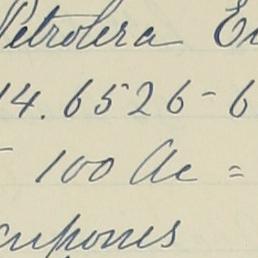 Petrolera E
14.6526-6
- 100 Ac =
cupones